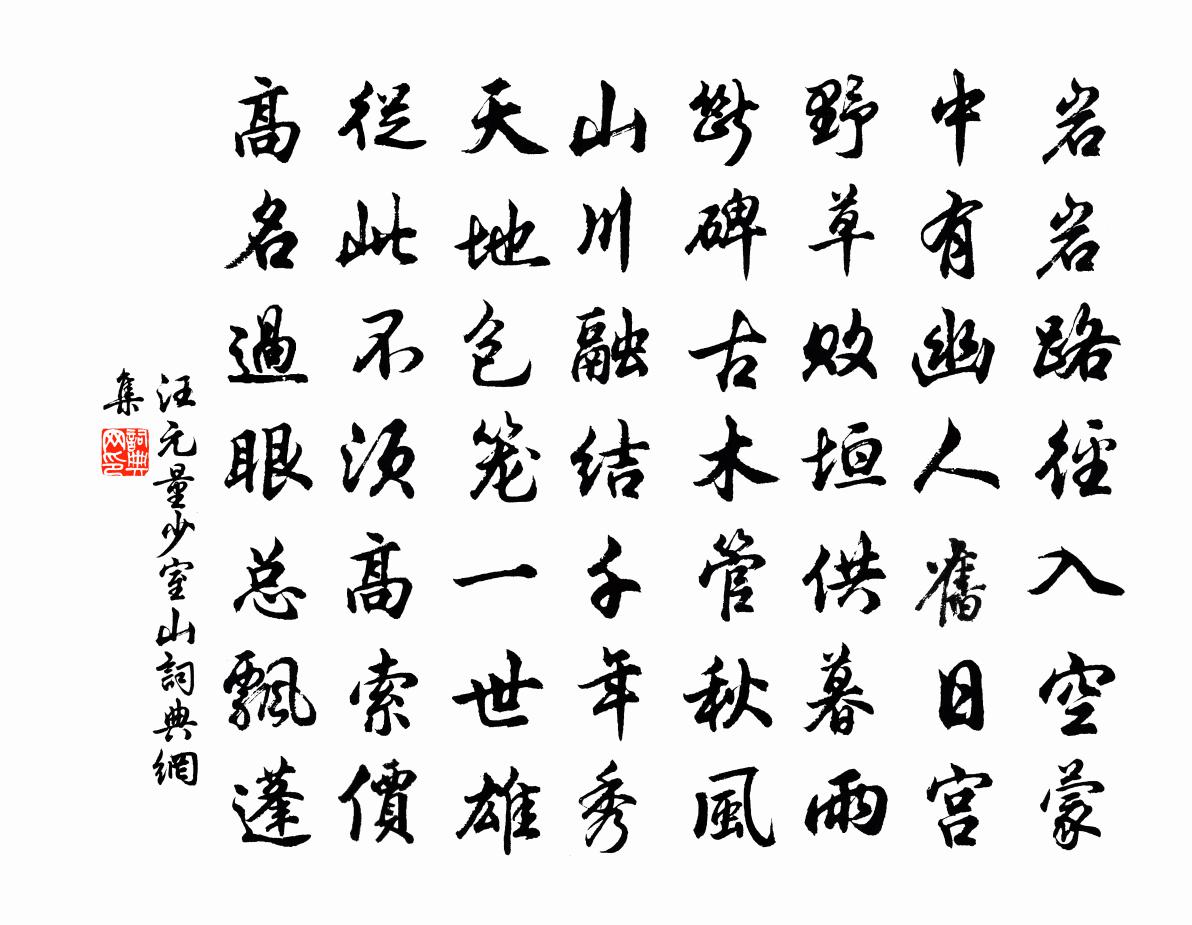 岩岩路徑入空蒙
中有幽人舊日宮
野草敗垣供暮雨
斷碑古木管秋風
山川融結千年秀
天地包笼一世雄
從此不須高索價
高名過眼总飄蓬
汪元量少室山詞典網
集
詞典网印